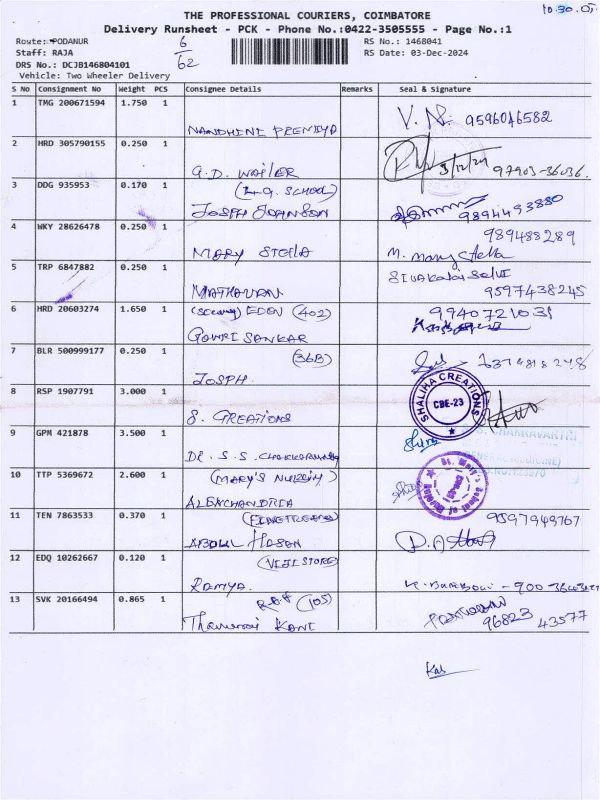 10.30.05
THE PROFESSIONAL COURIERS, COIMBATORE
Delivery Runsheet - PCK - Phone No.:0422-3505555 - Page No.:1
Route: PODANUR
6/62
RS No.: 1468041
Staff: RAJA
RS Date: 03-Dec-2024
DRS No.: DCJB146804101
Vehicle: Two Wheeler Delivery
S No Consignment No Weight PCS Consignee Details Remarks Seal & Signature
1 TMG 200671594 1.750 1
NANDHINI PREMIYA V. N. 9596046582
2 HRD 305790155 0.250 1
G.D. WAILER 3/12/24 97903-36036.
3 DDG 935953 0.170 1 (L.G. SCHOOL)
JOSPH JOHNSON 9894493830
4 WKY 28626478 0.250 1 989488289
MARY STELLA M. mary stella
5 TRP 6847882 0.250 1
MATHAVAN 9597438245
6 HRD 20603274 1.650 1 EDEN (402) 9940721031
GOWRI SANKAR
7 BLR 500999177 0.250 1 (36B)
JOSPH.
8 RSP 1907791 3.000 1
S. CREATIONS
SHALIHA CREATIONS
CBE-23
9 GPM 421878 3.500 1
DR. S.S. CHAKKARAVARTHY
10 TTP 5369672 2.600 1 (MARY'S NURSING)
ALEXCHANDRIA
11 TEN 7863533 0.370 1 9597949767
ABDUL HASAN
12 EDQ 10262667 0.120 1 (VIJI STORE)
RAMYA.
13 SVK 20166494 0.865 1 (105)
Thamarai KANI 96823 43577